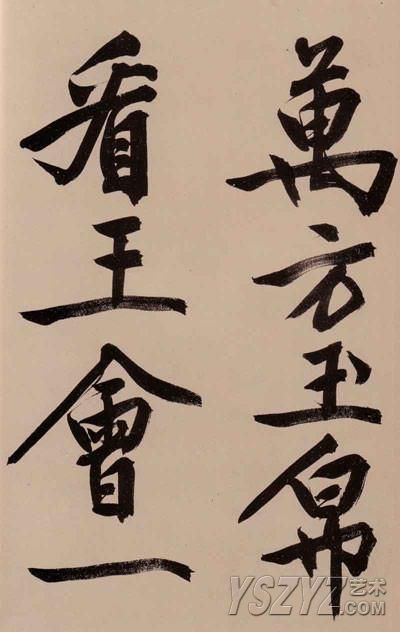 萬方玉帛
看王會一
YSZYZ艺术